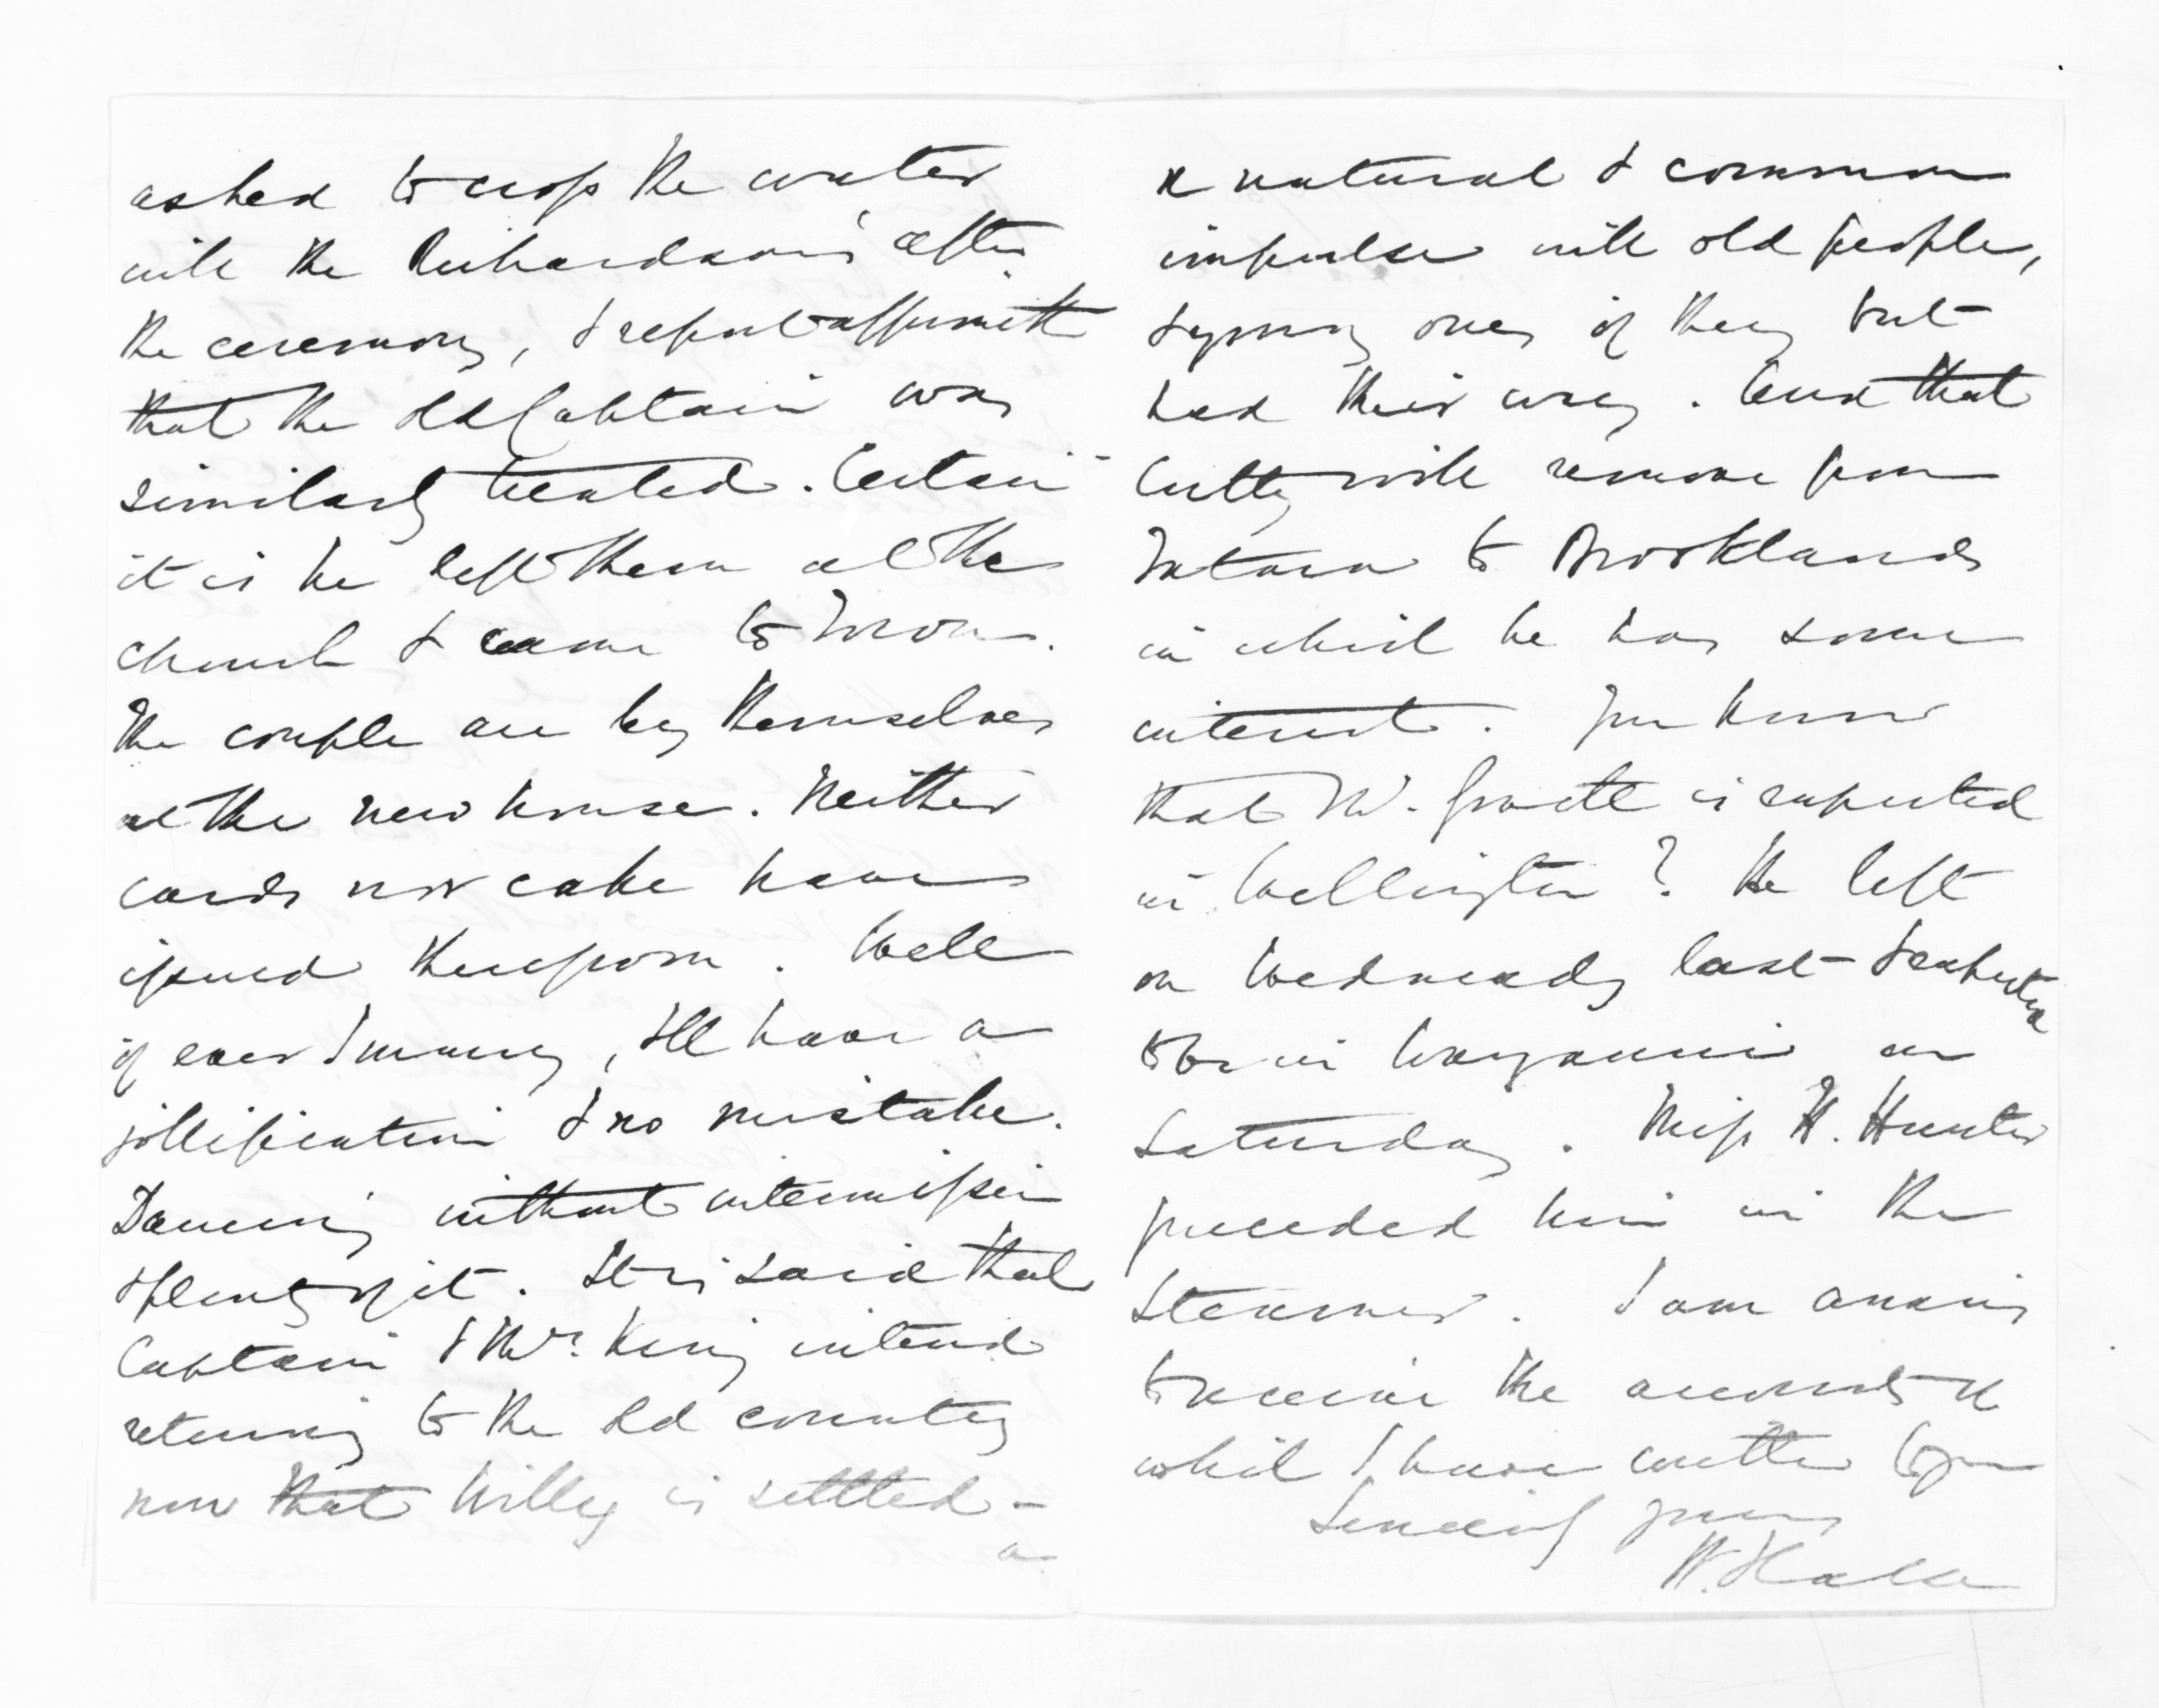 asked to cross the water
with the Richardsons' after
the ceremony, & report affirmeth
that the old Captain was
similarly treated. Certain
it is he left them at the
church & came to Town.
The couple are by themselves
at the new house. Neither
cards nor cake have
issued thereupon. Well
if ever I marry, I'll have a
jollification & no mistake.
Dancing without intermission
& plenty of it. It is said that
Captain & Mrs. King intend
returning to the old country
now that Willy is settled -
a
a natural & common
impulse with old people,
& young ones if they but
had their way. And that
Cutty will remove from
Tatara to Brooklands
in which he has some
interest. You know
that W. is expected
in Wellington? He left
on Wednesday last - & expected
to be in Wanganui on
Saturday. Miss H. Hunter
preceded him in the
Steamer. I am anxious
to receive the accounts of
which I have written to you
Sincerely yours
W. Halse